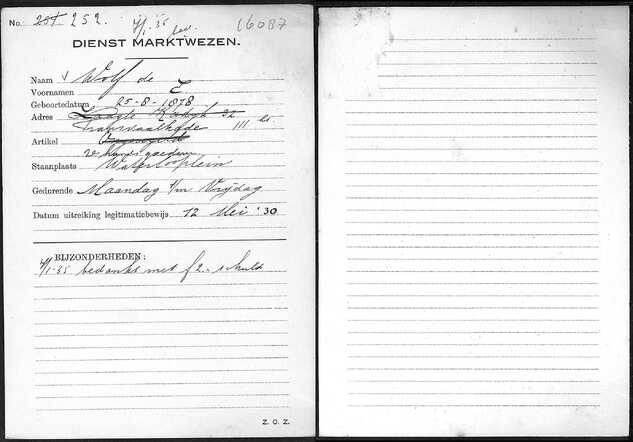 No. 251 252. 4/1-35 16087
DIENST MARKTWEZEN.
Naam Wolf de
Voornamen E
Geboortedatum 25-8-1878
Adres Laagte Kadijk 32
Transvaalkade 111 hs
Artikel
2e handsgoederen
Staanplaats Waterlooplein
Gedurende Maandag t/m Vrijdag
Datum uitreiking legitimatiebewijs 12 Mei '30
BIJZONDERHEDEN:
4/1-35 bedankt met f 2.- schuld
Z. O. Z.